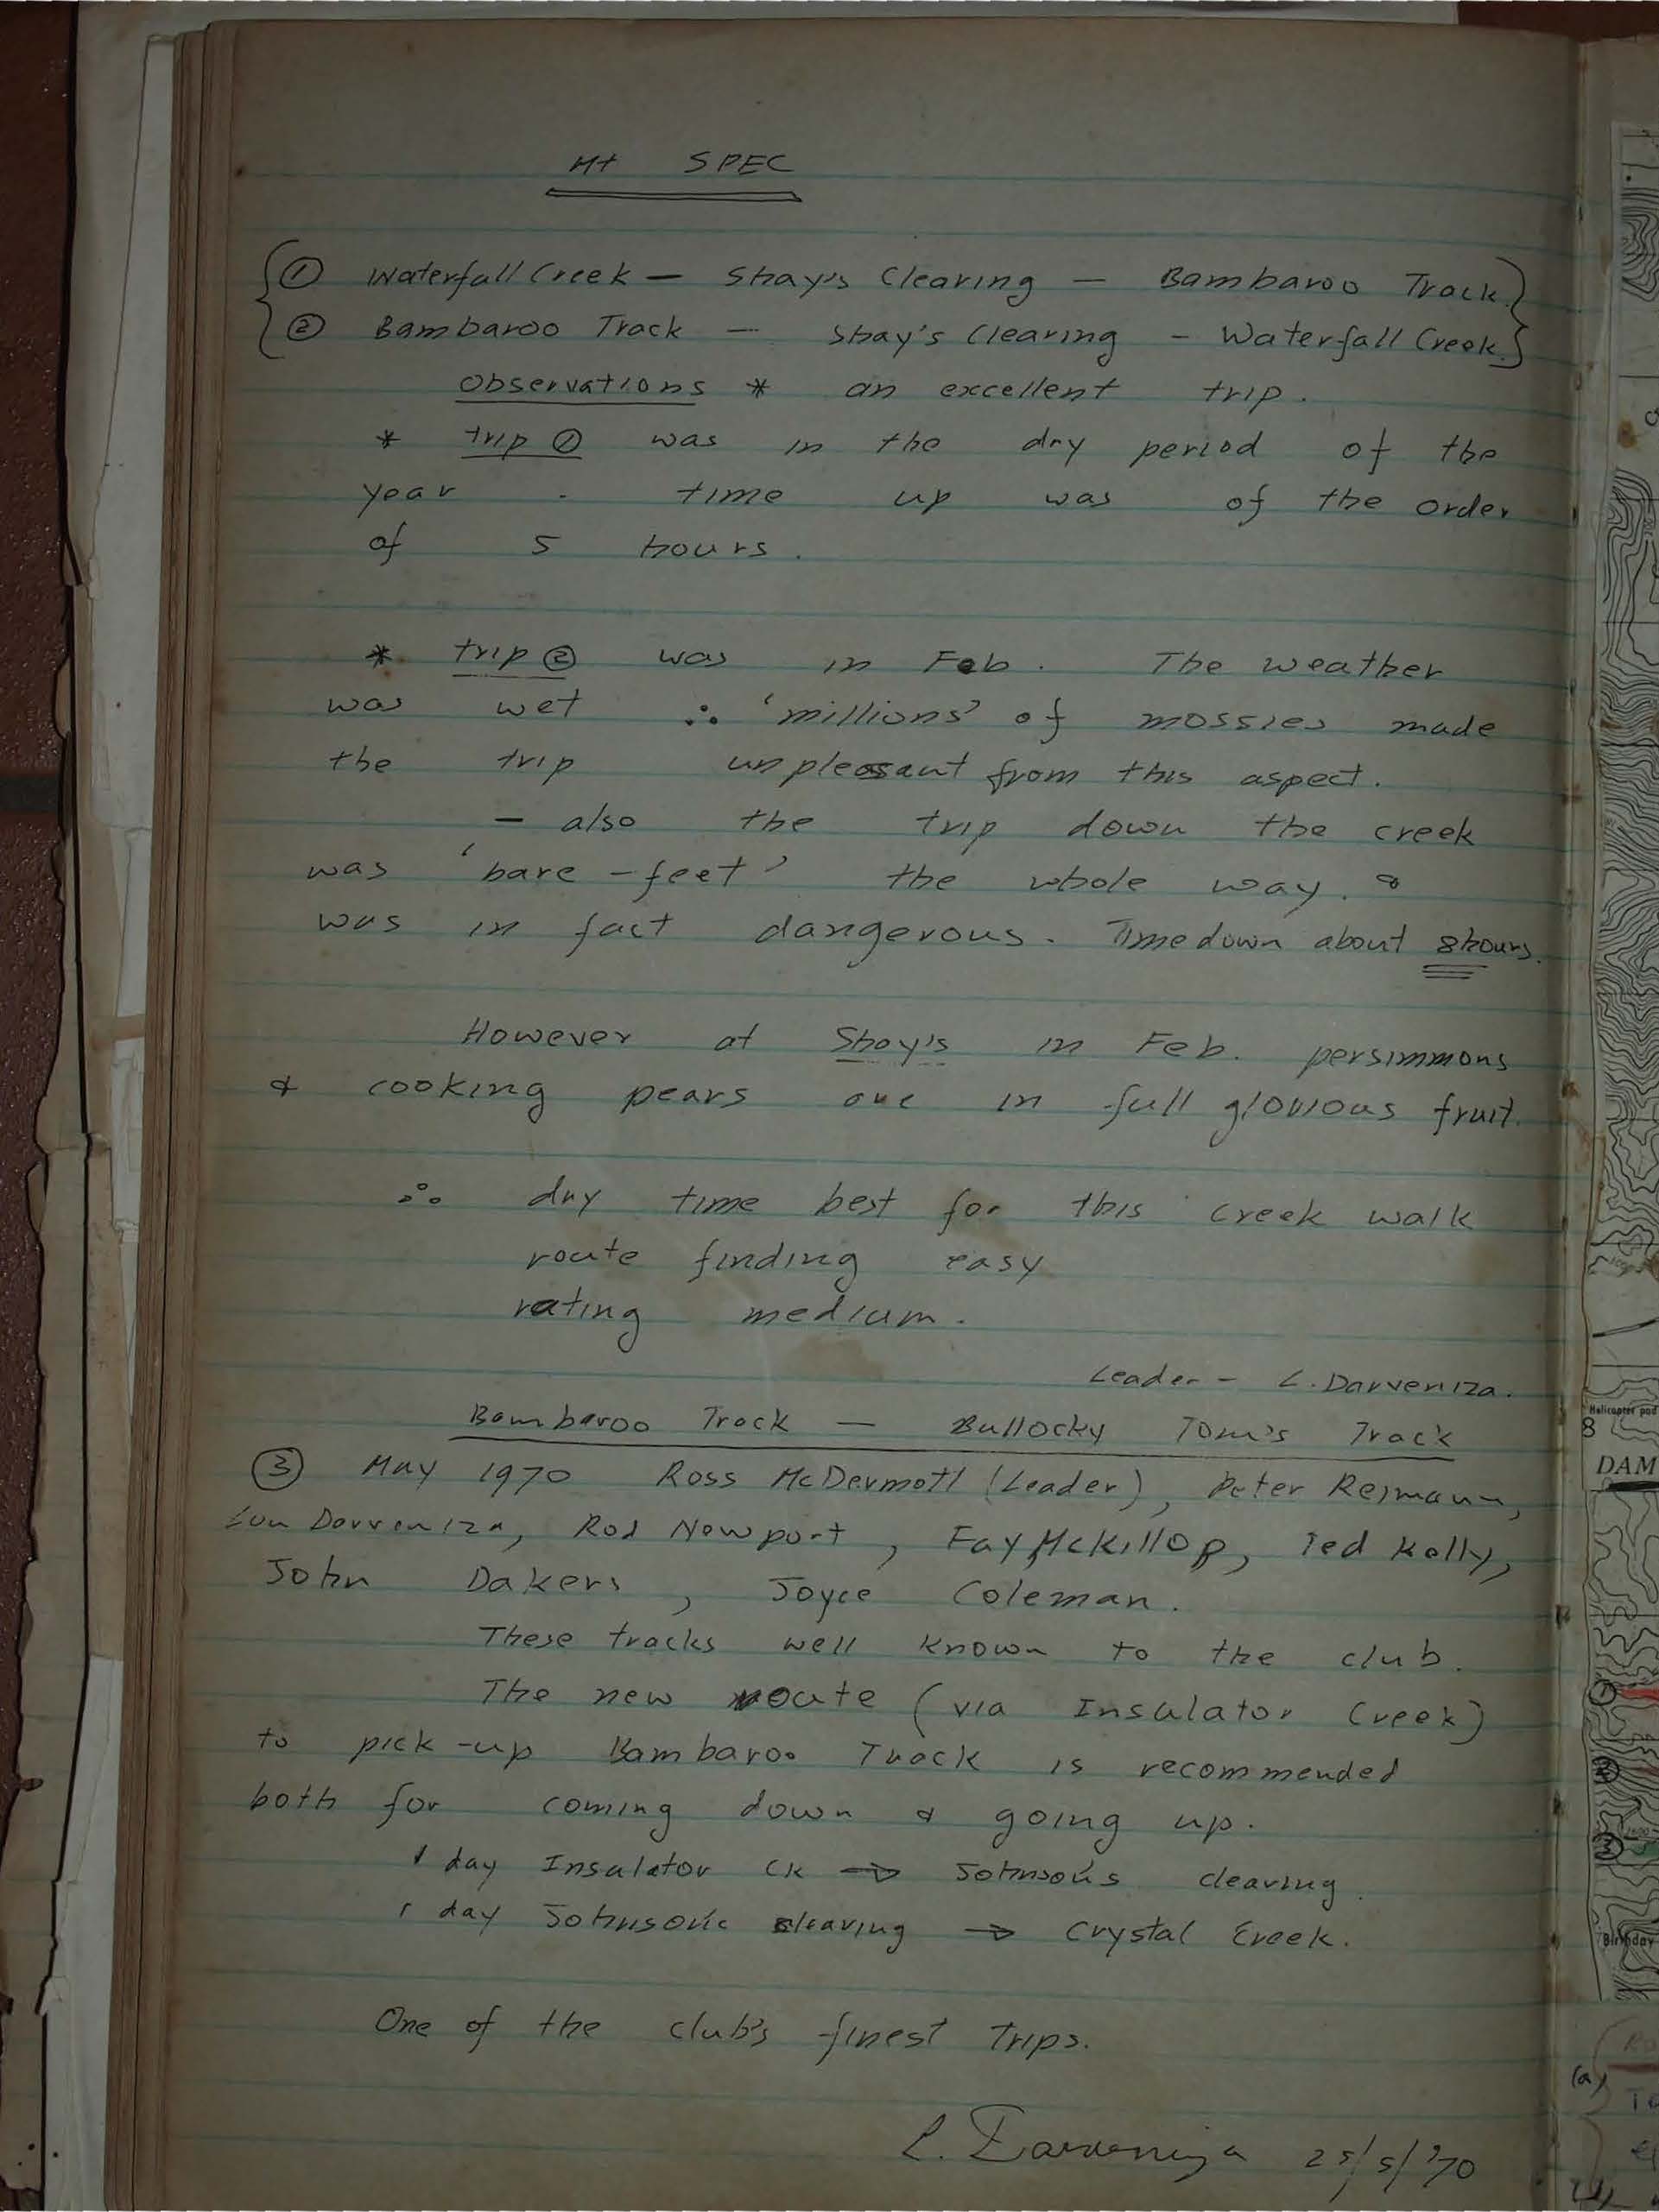 Mt SPEC
① Waterfall Creek — Shay's Clearing — Bambaroo Track.
② Bambaroo Track — Shay's Clearing - Waterfall Creek.
Observations * an excellent trip.
* trip ① was in the dry period of the
year. time up was of the order
of 5 hours.
* trip ② was in Feb. The weather
was wet ∴ 'millions' of mossies made
the trip unpleasant from this aspect.
— also the trip down the creek
was 'bare-feet' the whole way. &
was in fact dangerous. Time down about 8 hours.
However at Shay's in Feb. persimmons
& cooking pears are in full glorious fruit.
∴ dry time best for this creek walk
route finding easy
rating medium.
Leader - L. Darveniza.
Bambaroo Track — Bullocky Tom's Track
③ May 1970 Ross McDermott (Leader), Peter Reimann,
Lou Darveniza, Rod Newport, Fay McKillop, Ted Kelly,
John Dakers, Joyce Coleman.
These tracks well known to the club.
The new route (via Insulator Creek)
to pick-up Bambaroo Track is recommended
both for coming down & going up.
1 day Insulator Ck ⇒ Johnson's clearing.
1 day Johnson's clearing ⇒ Crystal Creek.
One of the club's finest Trips.
L. Darveniza 25/5/'70
Helicopter pad
8
DAM
Birthday
(a)